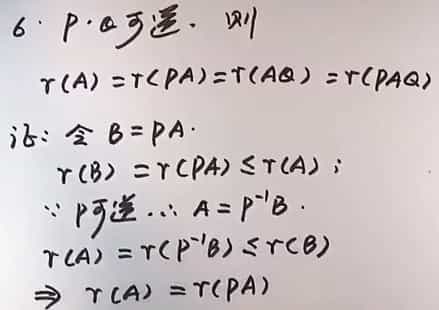 6. P.Q可逆. 则
r(A) = r(PA) = r(AQ) = r(PAQ)
证: 令 B = PA.
r(B) = r(PA) ≤ r(A) ;
∵ P可逆 ∴ A = P⁻¹B .
r(A) = r(P⁻¹B) ≤ r(B)
⇒ r(A) = r(PA)